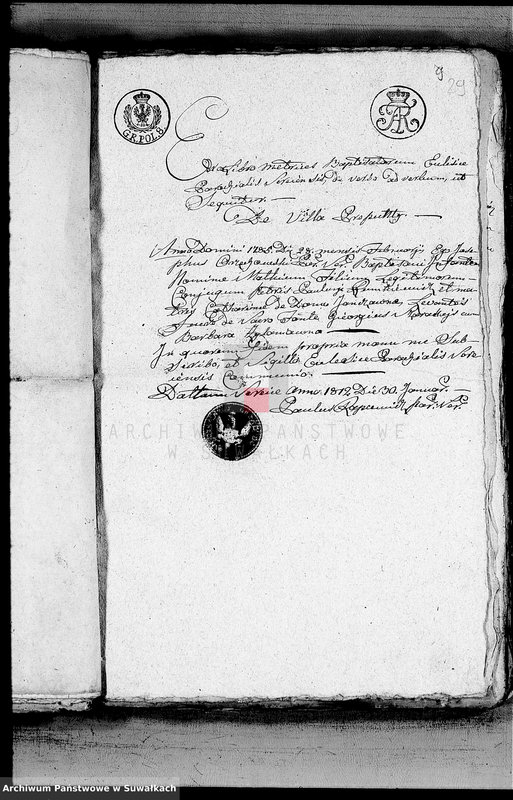 9
29
GR. POL. 8.
Ex Libro Metrices Baptisatorum Eclisiæ
Parochialis Sereiensis, de verbo ad verbum, ut
Sequitur.
De Villa
Anno Domini 178 Die 28 mensis Februarij Ego Jose-
phus Par: Ser: Baptisavi Infantem
Nomine Matheum Filium Legitimorum
Conjugum Patris et ma-
tris Catharina de Domo Levantes
fuere de Sacro Fonte Georgius cum
Barbara
In quorum fidem propria manu me Sub-
scribo, et Sigillo Eclesiæ Parochialis Sere-
iensis Communio.
Dattum Sereie Anno 1812 Die 30 Januar.
Paulus Par: Ser:
ARCHIWUM PAŃSTWOWE
W SUWAŁKACH
Archiwum Państwowe w Suwałkach